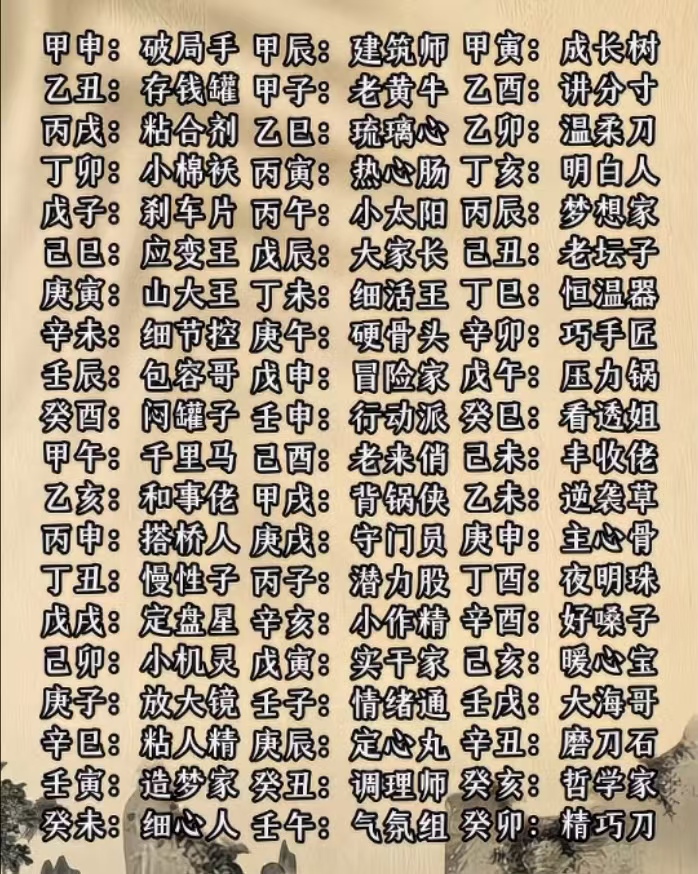 甲申：破局手 甲辰：建筑师 甲寅：成长树
乙丑：存钱罐 甲子：老黄牛 乙酉：讲分寸
丙戌：粘合剂 乙巳：琉璃心 乙卯：温柔刀
丁卯：小棉袄 丙寅：热心肠 丁亥：明白人
戊子：刹车片 丙午：小太阳 丙辰：梦想家
己巳：应变王 戊辰：大家长 己丑：老坛子
庚寅：山大王 丁未：细活王 丁巳：恒温器
辛未：细节控 庚午：硬骨头 辛卯：巧手匠
壬辰：包容哥 戊申：冒险家 戊午：压力锅
癸酉：闷罐子 壬申：行动派 癸巳：看透姐
甲午：千里马 己酉：老来俏 己未：丰收佬
乙亥：和事佬 甲戌：背锅侠 乙未：逆袭草
丙申：搭桥人 庚戌：守门员 庚申：主心骨
丁丑：慢性子 丙子：潜力股 丁酉：夜明珠
戊戌：定盘星 辛亥：小作精 辛酉：好嗓子
己卯：小机灵 戊寅：实干家 己亥：暖心宝
庚子：放大镜 壬子：情绪通 壬戌：大海哥
辛巳：粘人精 庚辰：定心丸 辛丑：磨刀石
壬寅：造梦家 癸丑：调理师 癸亥：哲学家
癸未：细心人 壬午：气氛组 癸卯：精巧刀